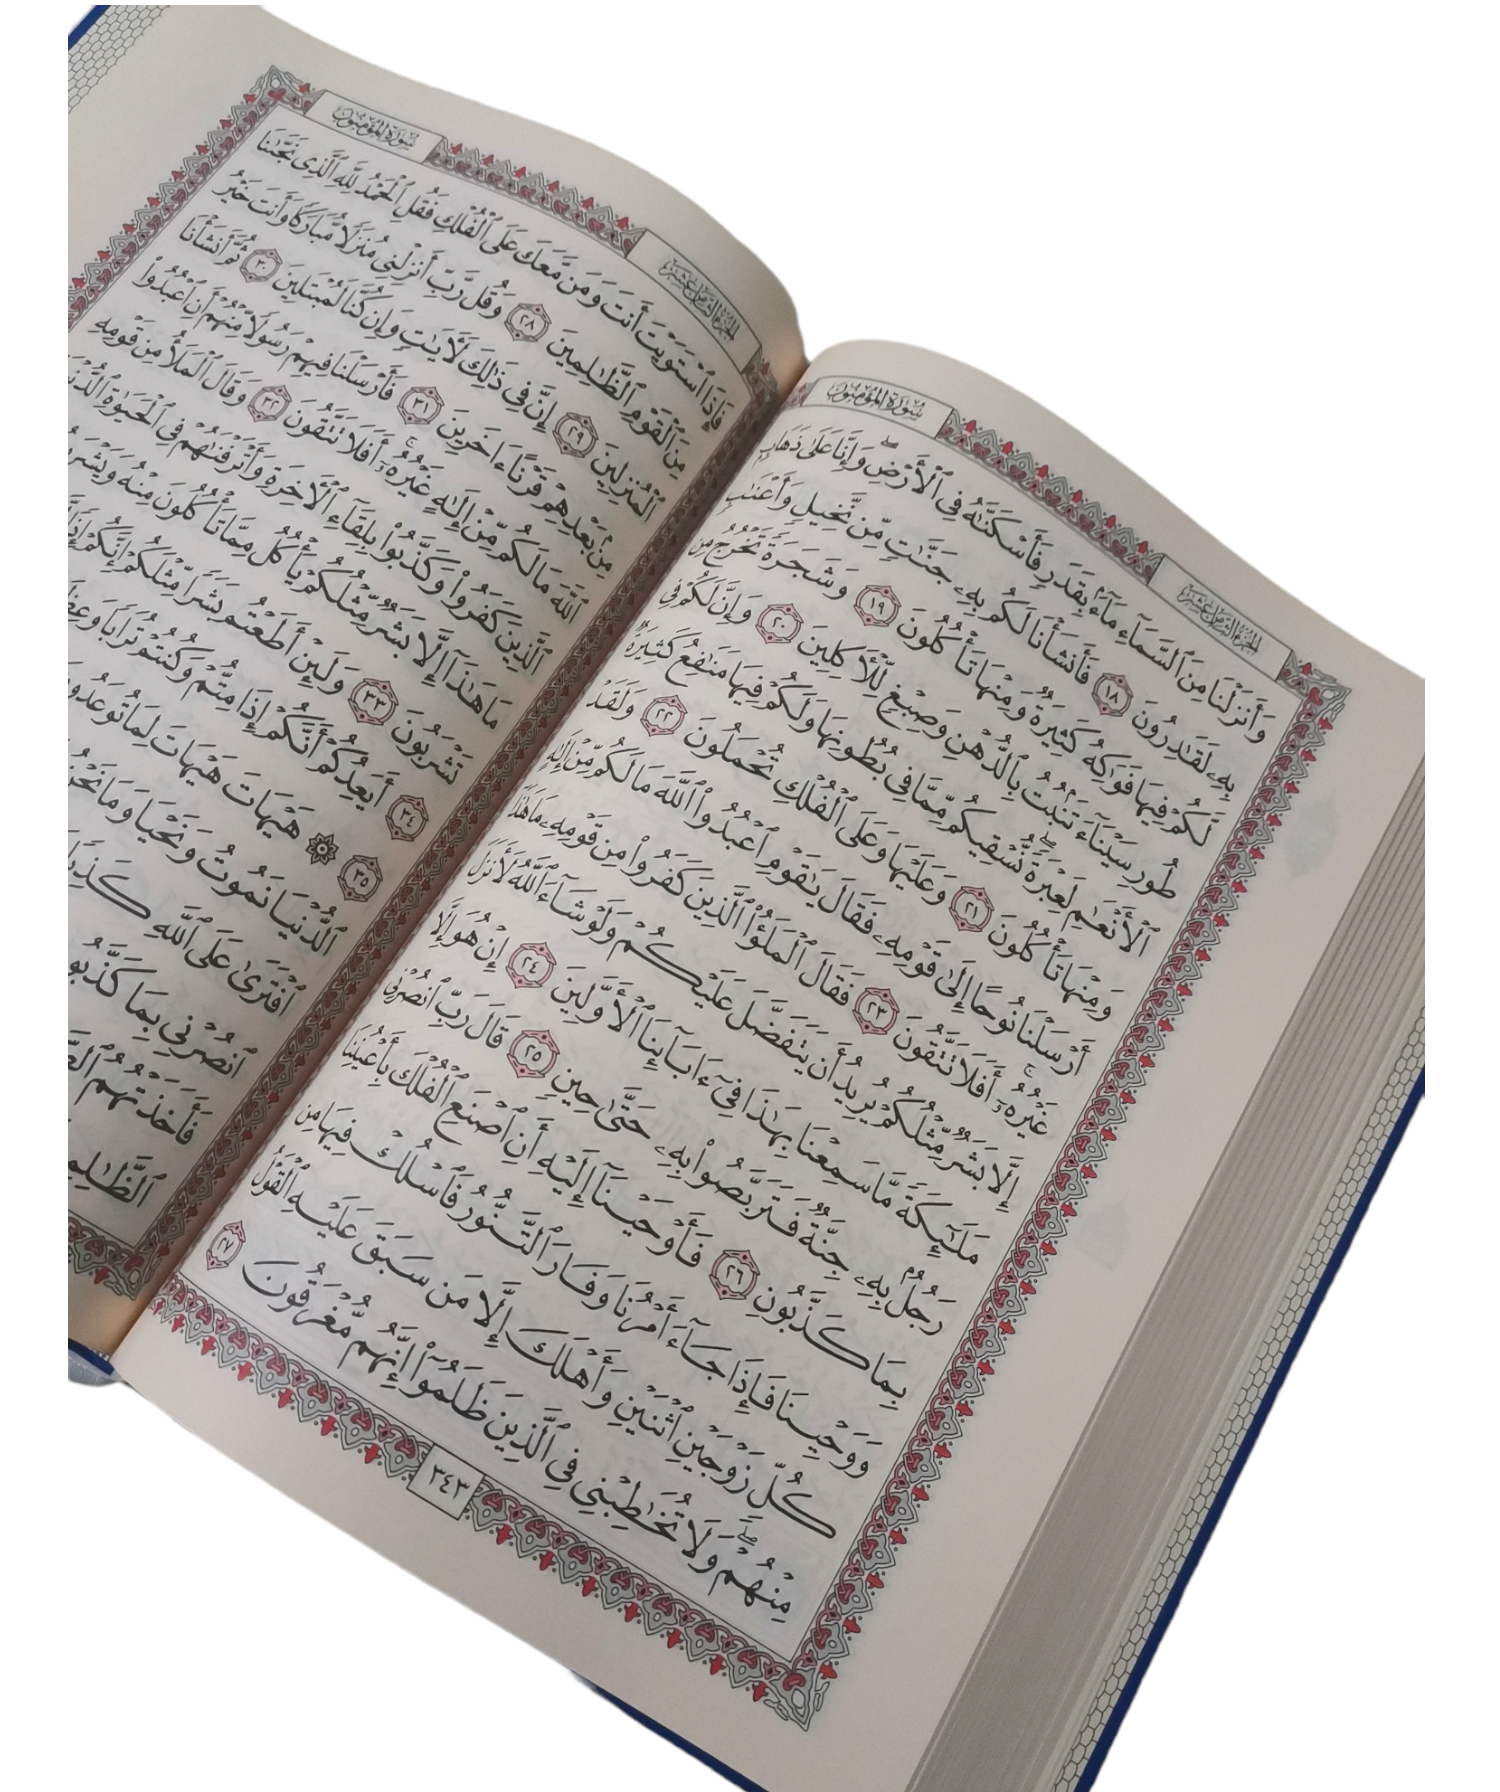 سُورَةُ المُؤْمِنُونَ
الجُزْءُ الثَّامِنَ عَشَرَ
وَأَنزَلْنَا مِنَ ٱلسَّمَآءِ مَآءًۢ بِقَدَرٍ فَأَسْكَنَّٰهُ فِى ٱلْأَرْضِۖ وَإِنَّا عَلَىٰ ذَهَابٍۭ
بِهِۦ لَقَٰدِرُونَ ١٨ فَأَنشَأْنَا لَكُم بِهِۦ جَنَّٰتٍ مِّن نَّخِيلٍ وَأَعْنَٰبٍ
لَّكُمْ فِيهَا فَوَٰكِهُ كَثِيرَةٌ وَمِنْهَا تَأْكُلُونَ ١٩ وَشَجَرَةً تَخْرُجُ مِن
طُورِ سَيْنَآءَ تَنۢبُتُ بِٱلدُّهْنِ وَصِبْغٍ لِّلْأٓكِلِينَ ٢٠ وَإِنَّ لَكُمْ فِى
ٱلْأَنْعَٰمِ لَعِبْرَةًۖ نُّسْقِيكُم مِّمَّا فِى بُطُونِهَا وَلَكُمْ فِيهَا مَنَٰفِعُ كَثِيرَةٌ
وَمِنْهَا تَأْكُلُونَ ٢١ وَعَلَيْهَا وَعَلَى ٱلْفُلْكِ تُحْمَلُونَ ٢٢ وَلَقَدْ
أَرْسَلْنَا نُوحًا إِلَىٰ قَوْمِهِۦ فَقَالَ يَٰقَوْمِ ٱعْبُدُوا۟ ٱللَّهَ مَا لَكُم مِّنْ إِلَٰهٍ
غَيْرُهُۥٓۚ أَفَلَا تَتَّقُونَ ٢٣ فَقَالَ ٱلْمَلَؤُا۟ ٱلَّذِينَ كَفَرُوا۟ مِن قَوْمِهِۦ مَا هَٰذَآ
إِلَّا بَشَرٌ مِّثْلُكُمْ يُرِيدُ أَن يَتَفَضَّلَ عَلَيْكُمْ وَلَوْ شَآءَ ٱللَّهُ لَأَنزَلَ
مَلَٰٓئِكَةً مَّا سَمِعْنَا بِهَٰذَا فِىٓ ءَابَآئِنَا ٱلْأَوَّلِينَ ٢٤ إِنْ هُوَ إِلَّا
رَجُلٌۢ بِهِۦ جِنَّةٌ فَتَرَبَّصُوا۟ بِهِۦ حَتَّىٰ حِينٍ ٢٥ قَالَ رَبِّ ٱنصُرْنِى
بِمَا كَذَّبُونِ ٢٦ فَأَوْحَيْنَآ إِلَيْهِ أَنِ ٱصْنَعِ ٱلْفُلْكَ بِأَعْيُنِنَا
وَوَحْيِنَا فَإِذَا جَآءَ أَمْرُنَا وَفَارَ ٱلتَّنُّورُ فَٱسْلُكْ فِيهَا مِن
كُلٍّ زَوْجَيْنِ ٱثْنَيْنِ وَأَهْلَكَ إِلَّا مَن سَبَقَ عَلَيْهِ ٱلْقَوْلُ
مِنْهُمْۖ وَلَا تُخَٰطِبْنِى فِى ٱلَّذِينَ ظَلَمُوٓا۟ إِنَّهُم مُّغْرَقُونَ ٢٧
٣٤٣
الجُزْءُ الثَّامِنَ عَشَرَ
سُورَةُ المُؤْمِنُونَ
فَإِذَا ٱسْتَوَيْتَ أَنتَ وَمَن مَّعَكَ عَلَى ٱلْفُلْكِ فَقُلِ ٱلْحَمْدُ لِلَّهِ ٱلَّذِى نَجَّىٰنَا
مِنَ ٱلْقَوْمِ ٱلظَّٰلِمِينَ ٢٨ وَقُل رَّبِّ أَنزِلْنِى مُنزَلًا مُّبَارَكًا وَأَنتَ خَيْرُ
ٱلْمُنزِلِينَ ٢٩ إِنَّ فِى ذَٰلِكَ لَأٓيَٰتٍ وَإِن كُنَّا لَمُبْتَلِينَ ٣٠ ثُمَّ أَنشَأْنَا
مِنۢ بَعْدِهِمْ قَرْنًا ءَاخَرِينَ ٣١ فَأَرْسَلْنَا فِيهِمْ رَسُولًا مِّنْهُمْ أَنِ ٱعْبُدُوا۟
ٱللَّهَ مَا لَكُم مِّنْ إِلَٰهٍ غَيْرُهُۥٓۚ أَفَلَا تَتَّقُونَ ٣٢ وَقَالَ ٱلْمَلَأُ مِن قَوْمِهِ
ٱلَّذِينَ كَفَرُوا۟ وَكَذَّبُوا۟ بِلِقَآءِ ٱلْأٓخِرَةِ وَأَتْرَفْنَٰهُمْ فِى ٱلْحَيَوٰةِ
مَا هَٰذَآ إِلَّا بَشَرٌ مِّثْلُكُمْ يَأْكُلُ مِمَّا تَأْكُلُونَ مِنْهُ
تَشْرَبُونَ ٣٣ وَلَئِنْ أَطَعْتُم بَشَرًا مِّثْلَكُمْ إِنَّكُمْ إِذًا
٣٤ أَيَعِدُكُمْ أَنَّكُمْ إِذَا مِتُّمْ وَكُنتُمْ تُرَابًا
٣٥ ۞ هَيْهَاتَ هَيْهَاتَ لِمَا
ٱلدُّنْيَا نَمُوتُ وَنَحْيَا وَمَا
ٱفْتَرَىٰ عَلَى ٱللَّهِ
ٱنصُرْنِى بِمَا
فَأَخَذَتْهُمُ